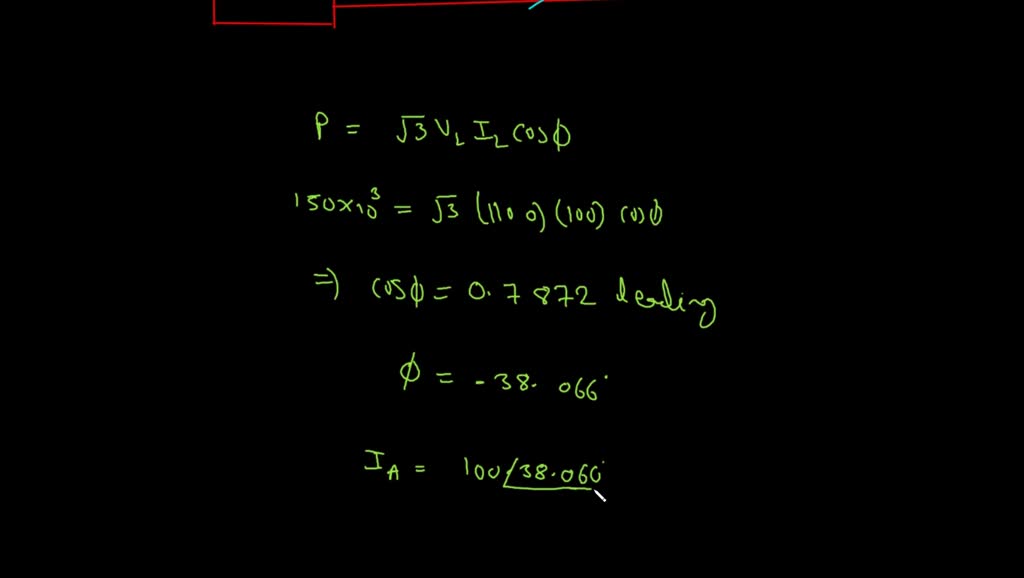 P = √3 V_L I_L cosϕ
150×10³ = √3 (1100) (100) cosϕ
⇒) cosϕ = 0.7872 leading
ϕ = -38.066°
I_A = 100∠38.060°